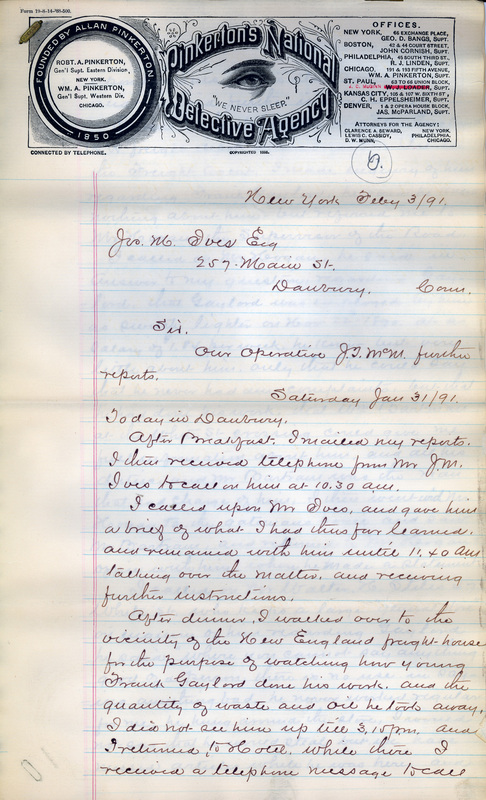 Form 19-8-14-'90-500.
FOUNDED BY ALLAN PINKERTON
1850
ROBT. A. PINKERTON,
Gen'l Supt. Eastern Division,
NEW YORK.
WM. A. PINKERTON,
Gen'l Supt. Western Div.
CHICAGO.
CONNECTED BY TELEPHONE.
Pinkerton's National
"WE NEVER SLEEP."
Detective Agency
OFFICES.
NEW YORK, 66 EXCHANGE PLACE,
GEO. D. BANGS, SUPT.
BOSTON, 42 & 44 COURT STREET,
JOHN CORNISH, SUPT.
PHILADELPHIA, 45 SOUTH THIRD ST.
R. J. LINDEN, SUPT.
CHICAGO, 191 & 193 FIFTH AVENUE,
WM. A. PINKERTON, SUPT.
ST. PAUL, UNION BLOCK,
W. J. LOADER, SUPT.
KANSAS CITY, 105 & 107 W. SIXTH ST.
C. H. EPPELSHEIMER, SUPT.
DENVER, 1 & 2 OPERA HOUSE BLOCK,
JAS. McPARLAND, SUPT.
ATTORNEYS FOR THE AGENCY:
CLARENCE A. SEWARD, NEW YORK.
LEWIS C. CASSIDY, PHILADELPHIA.
D. W. MUNN, CHICAGO.
New York Feby 3/91.
Jas. M. Ives Esq
257. Main St.
Danbury. Conn.
Sir.
Our Operative J.T. McM. further
reports.
Saturday Jan 31/91.
Today in Danbury.
After Breakfast. I mailed my reports.
I then received telephone from Mr J.M.
Ives to call on him at 10.30 am.
I called upon Mr Ives, and gave him
a brief of what I had thus far learned.
and remained with him until 11.40 Am
talking over the matter. and receiving
further instructions.
After dinner, I walked over to the
vicinity of the New England freight-house
for the purpose of watching how young
Frank Gaylord done his work. and the
quantity of waste and oil he took away.
I did not see him up till 3,15 pm, and
I returned to Hotel. while there I
received a telephone message to call